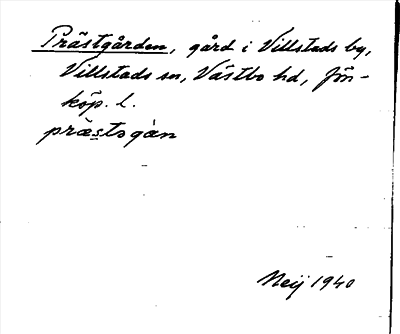 Prästgården, gård i Villstads by,
Villstads sn, Västbo hd, Jön-
köp. l.
präs̱tɔgàn
Neij 1940